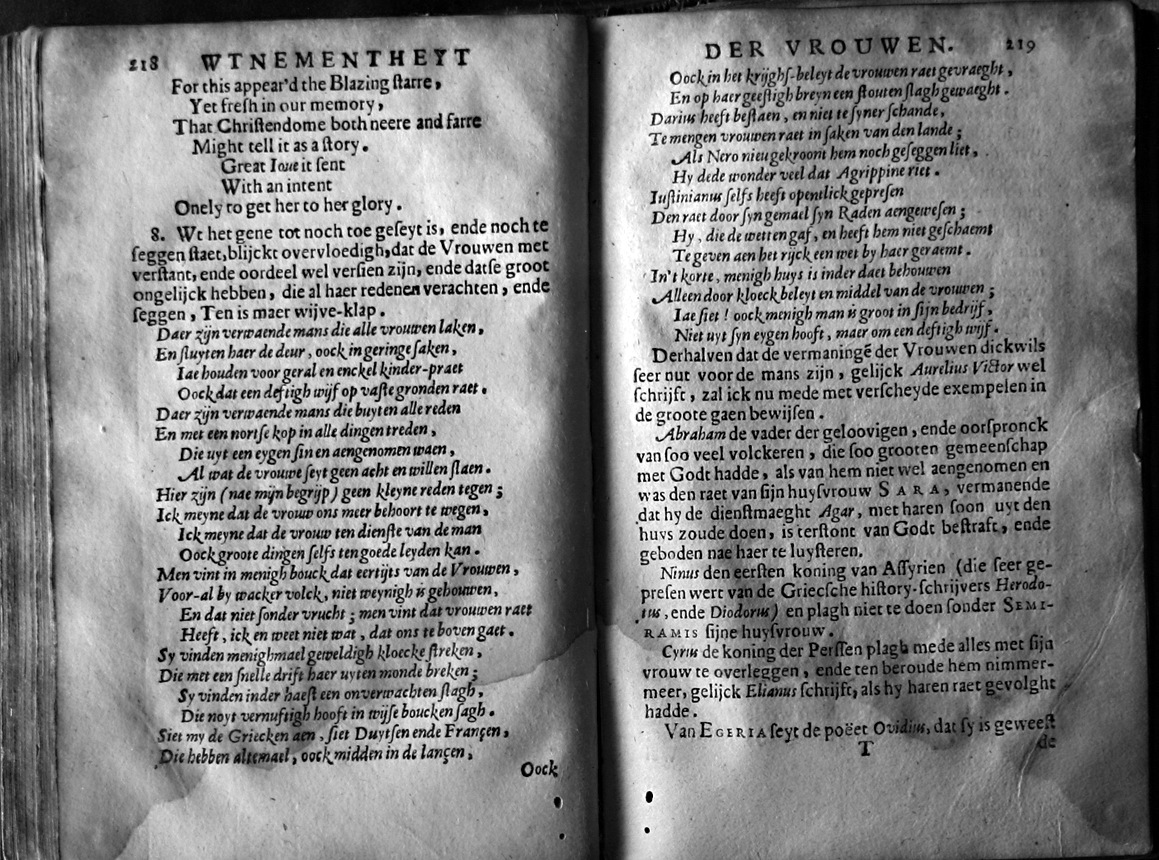 218 WTNEMENTHEYT
For this appear'd the Blazing ſtarre,
Yet freſh in our memory,
That Chriſtendome both neere and farre
Might tell it as a ſtory.
Great Ioue it ſent
With an intent
Onely to get her to her glory.
8. Wt het gene tot noch toe geſeyt is, ende noch te
ſeggen ſtaet, blijckt overvloedigh, dat de Vrouwen met
verſtant, ende oordeel wel verſien zijn, ende datſe groot
ongelijck hebben, die al haer redenen verachten, ende
ſeggen, Ten is maer wijve-klap.
Daer zijn verwaende mans die alle vrouwen laken,
En ſluyten haer de deur, oock in geringe ſaken,
Iae houden voor geral en enckel kinder-praet
Oock dat een deftigh wijf op vaſte gronden raet.
Daer zijn verwaende mans die buyten alle reden
En met een nortſe kop in alle dingen treden,
Die uyt een eygen ſin en aengenomen waen,
Al wat de vrouwe ſeyt geen acht en willen ſlaen.
Hier zijn (nae mijn begrijp) geen kleyne reden tegen;
Ick meyne dat de vrouw ons meer behoort te wegen,
Ick meyne dat de vrouw ten dienſte van de man
Oock groote dingen ſelfs ten goede leyden kan.
Men vint in menigh bouck dat eertijts van de Vrouwen,
Voor-al by wacker volck, niet weynigh is gehouwen,
En dat niet ſonder vrucht; men vint dat vrouwen raet
Heeft, ick en weet niet wat, dat ons te boven gaet.
Sy vinden menighmael geweldigh kloecke ſtreken,
Die met een ſnelle drift haer uyten monde breken;
Sy vinden inder haeſt een onverwachten ſlagh,
Die noyt vernuftigh hooft in wijſe boucken ſagh.
Siet my de Griecken aen, ſiet Duytſen ende Françen,
Die hebben altemael, oock midden in de lançen,
Oock
DER VROUWEN. 219
Oock in het krijghſ-beleyt de vrouwen raet gevraeght,
En op haer geeſtigh breyn een ſtouten ſlagh gewaeght.
Darius heeft beſtaen, en niet te ſyner ſchande,
Te mengen vrouwen raet in ſaken van den lande;
Als Nero nieu gekroont hem noch geſeggen liet,
Hy dede wonder veel dat Agrippine riet.
Iuſtinianus ſelfs heeft opentlick gepreſen
Den raet door ſyn gemael ſyn Raden aengeweſen;
Hy, die de wetten gaf, en heeft hem niet geſchaemt
Te geven aen het rijck een wet by haer geraemt.
In't korte, menigh huys is inder daet behouwen
Alleen door kloeck beleyt en middel van de vrouwen;
Iae ſiet! oock menigh man is groot in ſijn bedrijf,
Niet uyt ſyn eygen hooft, maer om een deftigh wijf.
Derhalven dat de vermaningē der Vrouwen dickwils
ſeer nut voor de mans zijn, gelijck Aurelius Victor wel
ſchrijft, zal ick nu mede met verſcheyde exempelen in
de groote gaen bewijſen.
Abraham de vader der geloovigen, ende oorſpronck
van ſoo veel volckeren, die ſoo grooten gemeenſchap
met Godt hadde, als van hem niet wel aengenomen en
was den raet van ſijn huyſvrouw SARA, vermanende
dat hy de dienſtmaeght Agar, met haren ſoon uyt den
huys zoude doen, is terſtont van Godt beſtraft, ende
geboden nae haer te luyſteren.
Ninus den eerſten koning van Aſſyrien (die ſeer ge-
preſen wert van de Griecſche hiſtory-ſchrijvers Herodo-
tus, ende Diodorus) en plagh niet te doen ſonder SEMI-
RAMIS ſijne huyſvrouw.
Cyrus de koning der Perſſen plagh mede alles met ſijn
vrouw te overleggen, ende ten beroude hem nimmer-
meer, gelijck Elianus ſchrijft, als hy haren raet gevolght
hadde.
Van EGERIA ſeyt de poëet Ovidius, dat ſy is geweeſt
T de